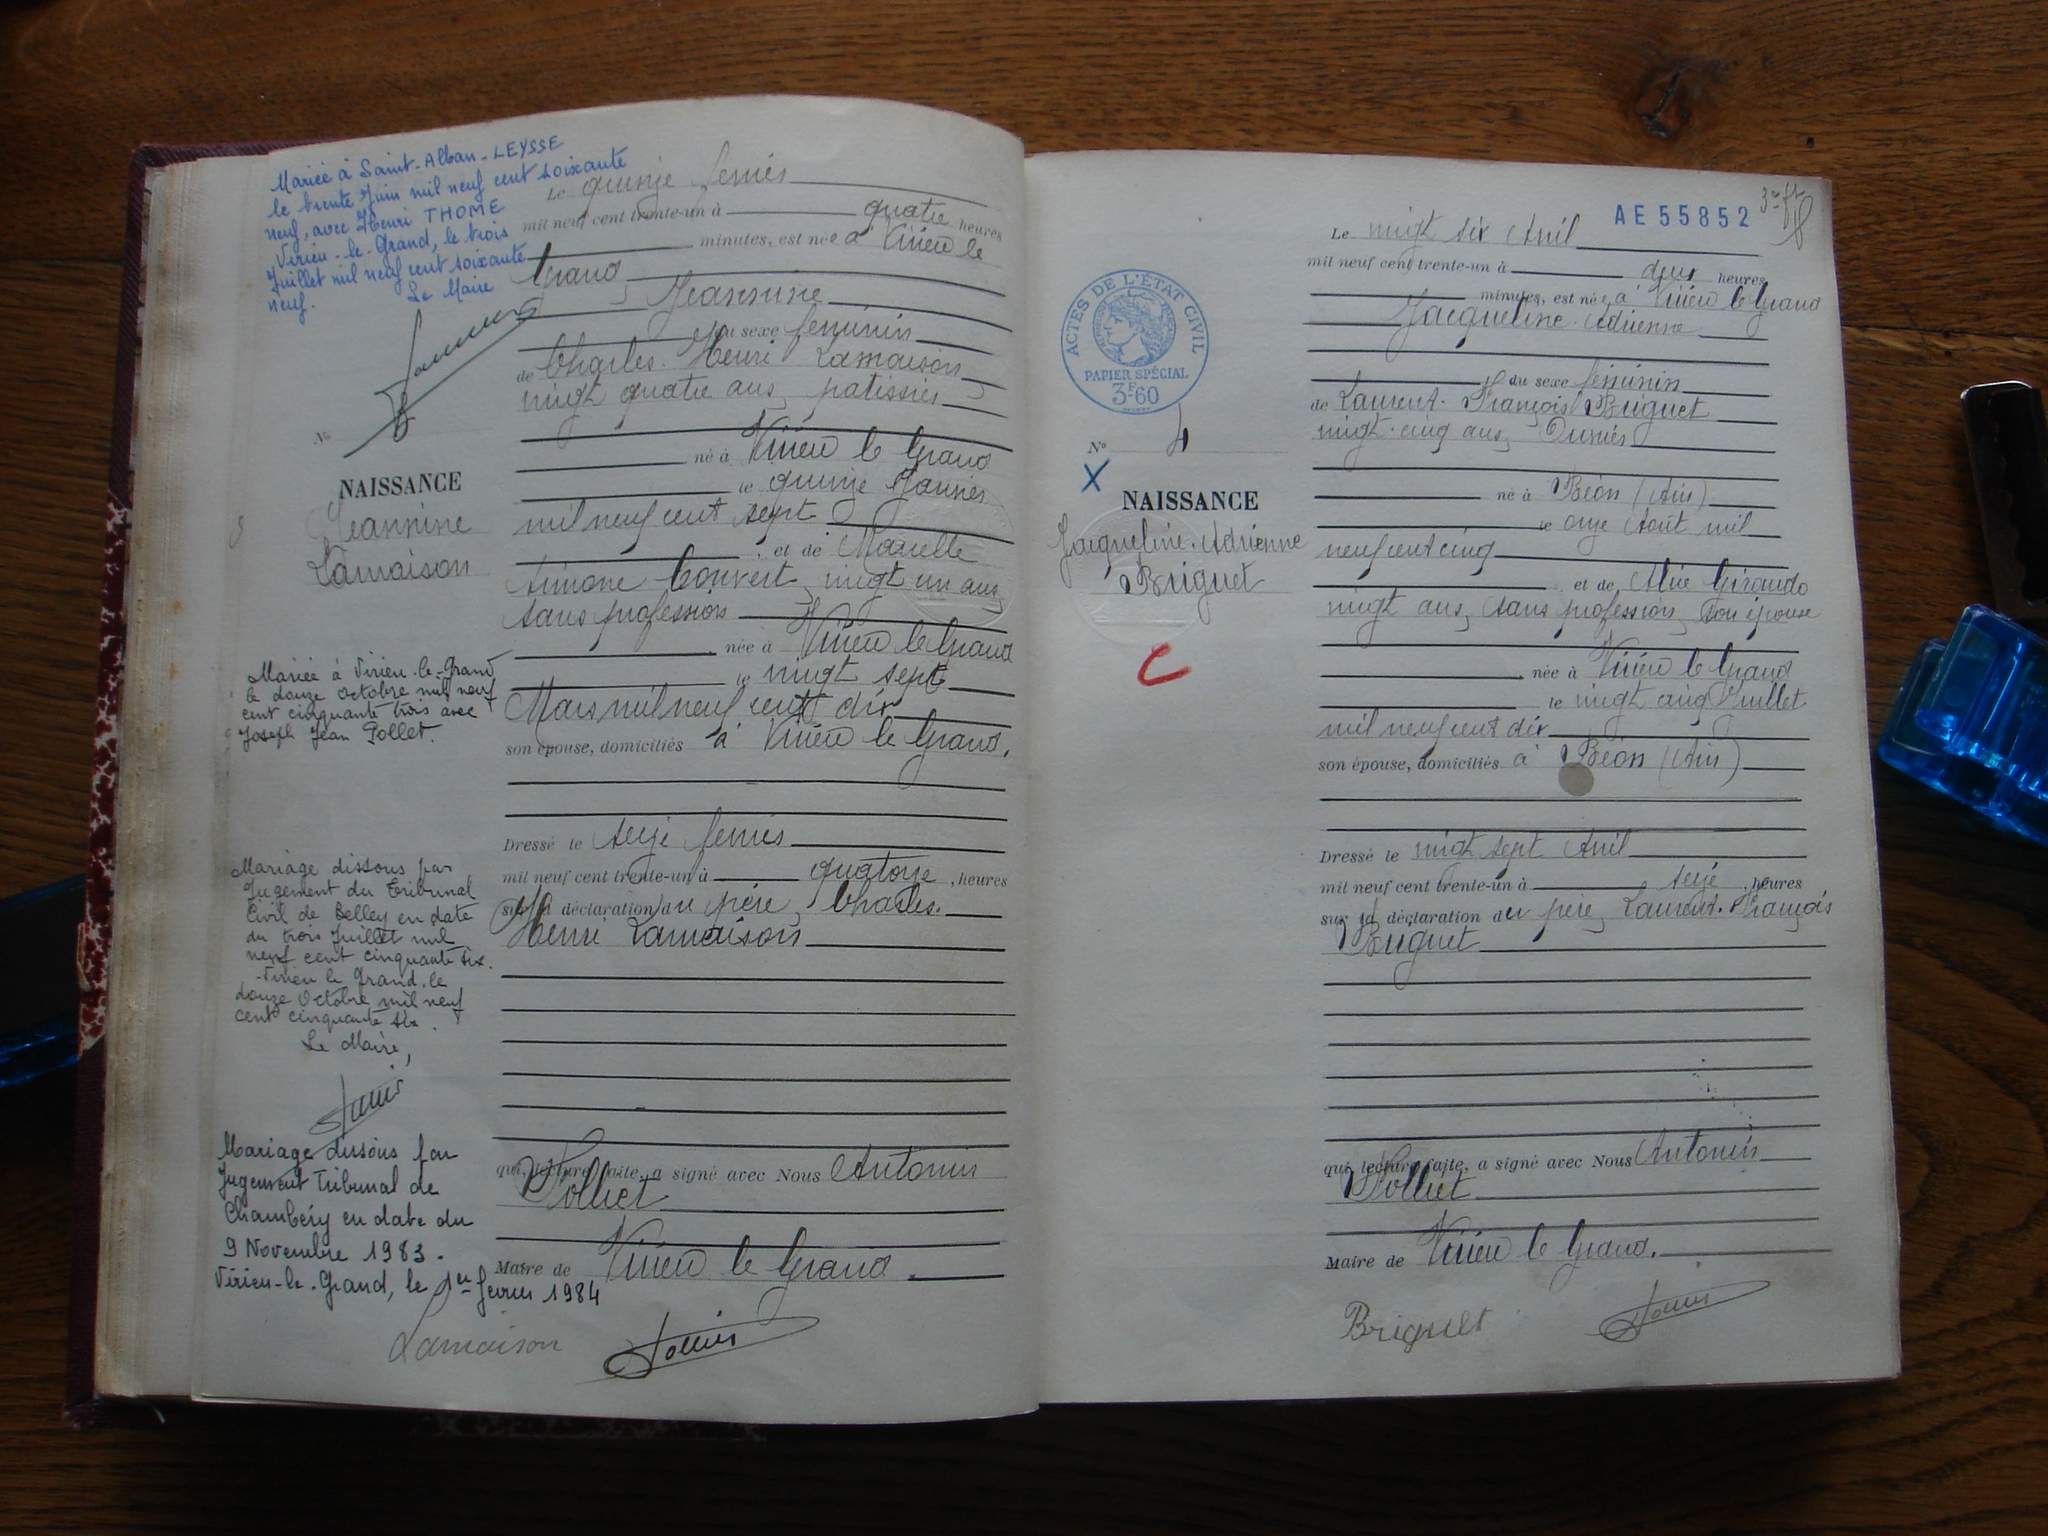 Mariée à Saint-Alban-LEYSSE
le trente Juin mil neuf cent soixante
neuf, avec Henri THOME
Virieu-le-Grand, le trois
Juillet mil neuf cent soixante
neuf.
Le Maire
No
NAISSANCE
Jeannine
Lamaison
Mariée à Virieu-le-Grand
le douze octobre mil neuf
cent cinquante trois avec
Joseph Jean Pollet.
Mariage dissous par
Jugement du Tribunal
Civil de Belley en date
du trois Juillet mil
neuf cent cinquante six.
Virieu le Grand, le
douze Octobre mil neuf
cent cinquante six.
Le Maire,
Mariage dissous par
Jugement Tribunal de
Chambéry en date du
9 Novembre 1983.
Virieu-le-Grand, le 1er février 1984
Le quinze février
mil neuf cent trente-un à quatre heures
minutes, est née à Virieu le
Grand
Jeannine
du sexe féminin
de Charles Henri Lamaison
vingt quatre ans, patissier
né à Virieu le Grand
le quinze Janvier
mil neuf cent sept
, et de Marcelle
Simone Convert, vingt un ans,
sans profession
, née à Virieu le Grand
le vingt sept
Mars mil neuf cent dix
son épouse, domiciliés à Virieu le Grand.
Dressé le seize février
mil neuf cent trente-un à quatorze, heures
sur la déclaration du père, Charles.
Henri Lamaison
qui, lecture faite, a signé avec Nous Antonin
Maire de Virieu le Grand.
Lamaison
AE 55852
ACTES DE L'ÉTAT CIVIL
PAPIER SPÉCIAL
3F60
No 4
X
NAISSANCE
Jacqueline-Adrienne
Briguet
C
Le vingt six Avril
mil neuf cent trente-un à deux heures
minutes, est née, à Virieu le Grand
Jacqueline-Adrienne
du sexe féminin
de Laurent-François Briguet
vingt-cinq ans, Ouvrier
né à Béon (Ain)
le onze Août mil
neuf cent cinq
et de Alice Giraudo
vingt ans, sans profession, son épouse
, née à Virieu le Grand
le vingt cinq Juillet
mil neuf cent dix
son épouse, domiciliés à Béon (Ain)
Dressé le vingt sept Avril
mil neuf cent trente-un à seize, heures
sur la déclaration du père, Laurent-François
Briguet
qui, lecture faite, a signé avec Nous Antonin
Maire de Virieu le Grand.
Briguet